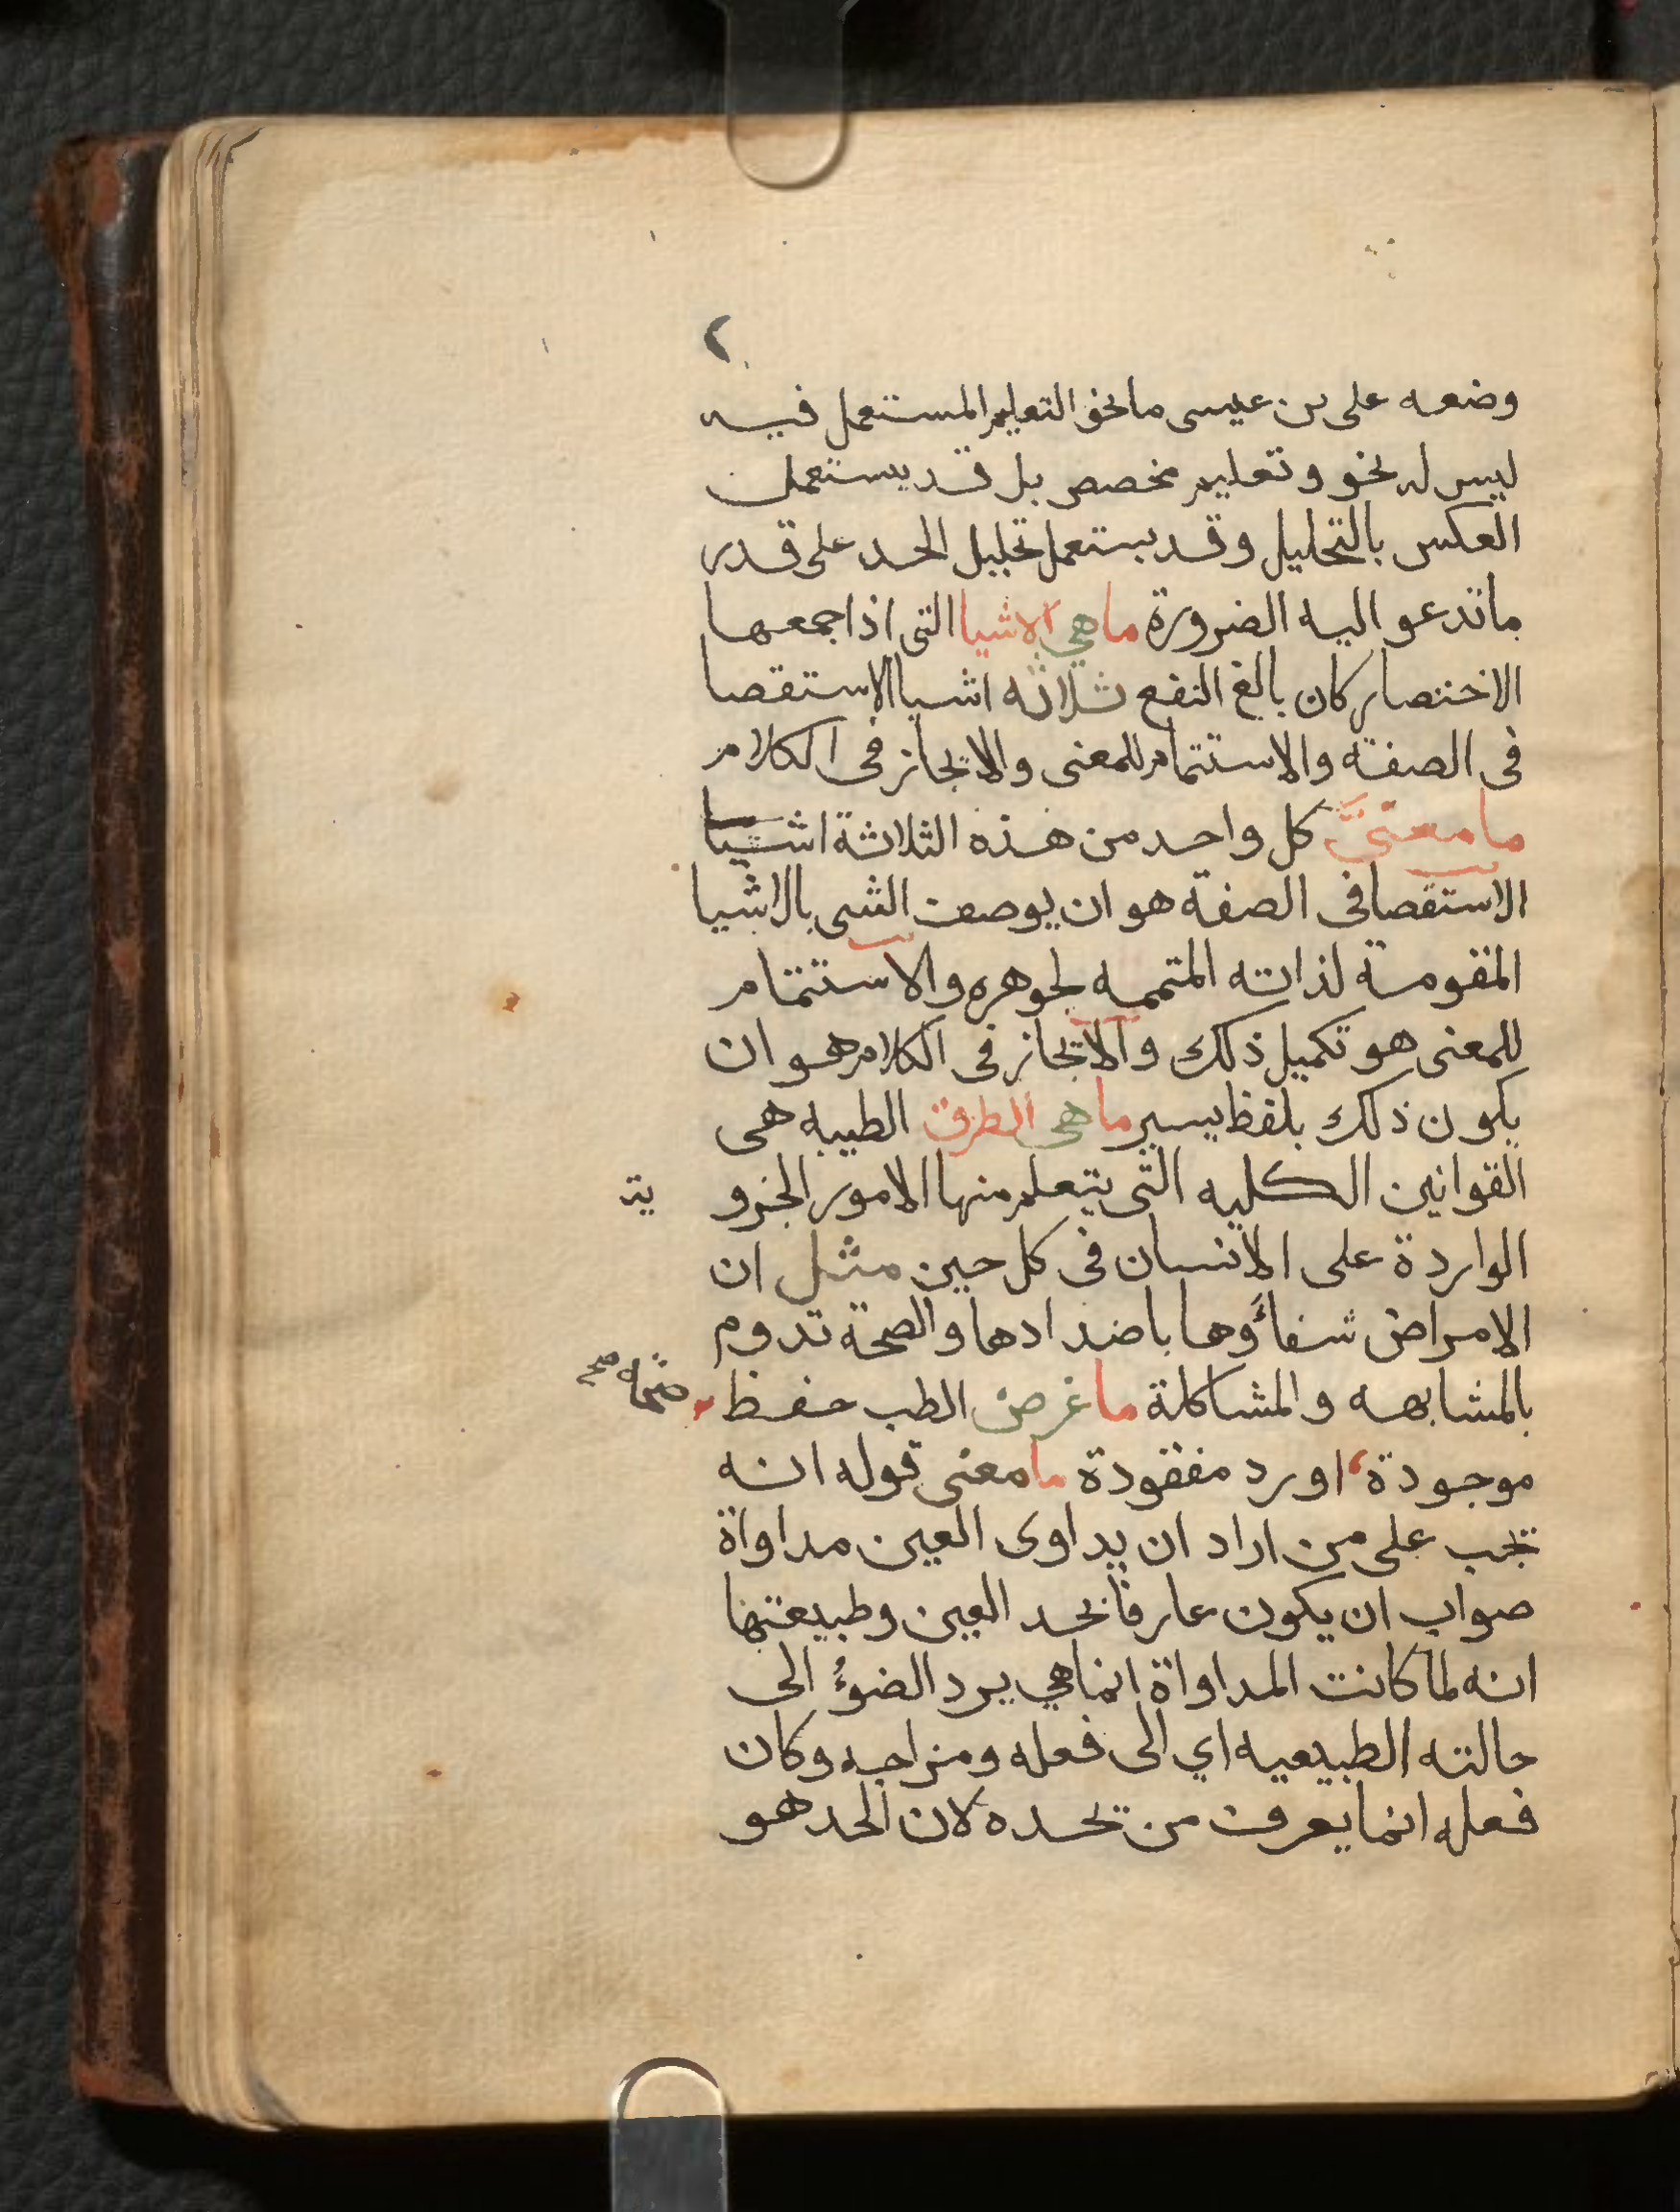 ٢
وضعه على بن عيسى ما نحو التعليم المستعمل فيه
ليس له نحو وتعليم مخصص بل قد يستعمل
العكس بالتحليل وقد يستعمل تحليل الحد على قدر
ما تدعو اليه الضرورة ما هي الاشيا التى اذا جمعها
الاختصار كان بالغ النفع ثلاثه اشيا الاستقصا
فى الصفة والاستتمام للمعنى والايجاز فى الكلام
ما معنى كل واحد من هذه الثلاثة اشيا
الاستقصا فى الصفة هو ان يوصف الشى بالاشيا
المقومة لذاته المتممه لجوهره والاستتمام
للمعنى هو تكميل ذلك والايجاز فى الكلام هو ان
يكون ذلك بلفظ يسير ما هى الطرق الطبيه هى
القوانين الكليه التى يتعلم منها الامور الجزو ية
الواردة على الانسان فى كل حين مثل ان
الامراض شفاؤها باضدادها والصحة تدوم
بالمشابهه والمشاكلة ما غرض الطب حفظ
موجودة او رد مفقودة ما معنى قوله انه
يجب على من اراد ان يداوى العين مداواة
صواب ان يكون عارفا بحد العين وطبيعتها
انه لما كانت المداواة انما هي يرد الضوء الى
حالته الطبيعيه اي الى فعله ومزاجه وكان
فعله انما يعرف من تحده لان الحد هو